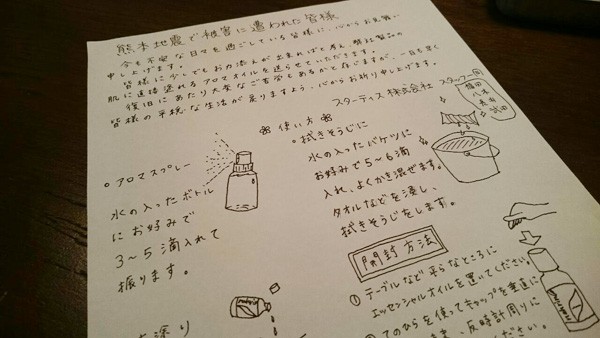 熊本地震で被害に遭われた皆様
今も不安な日々を過ごしている皆様に、心からお見舞い
申し上げます。
皆様に少しでもお力添えが出来ればと考え、弊社製品の
肌に直接塗れるアロマオイルを送らせていただきます。
復旧にあたり大変なご苦労もあるかと存じますが、一日も早く
皆様の平穏な生活が戻りますよう、心からお祈り申し上げます。
スターティス株式会社 スタッフ一同
長井
武田
※ 使い方 ※
○ アロマスプレー
水の入ったボトル
にお好みで
3〜5滴入れて
振ります。
○ 拭きそうじに
水の入ったバケツに
お好みで5〜6滴
入れ、よくかき混ぜます。
タオルなどを湿し、
拭きそうじをします。
開封方法
① テーブルなど平らなところに
エッセンシャルオイルを置いてください。
② てのひらを使ってキャップを垂直に
反時計周りに
ください。